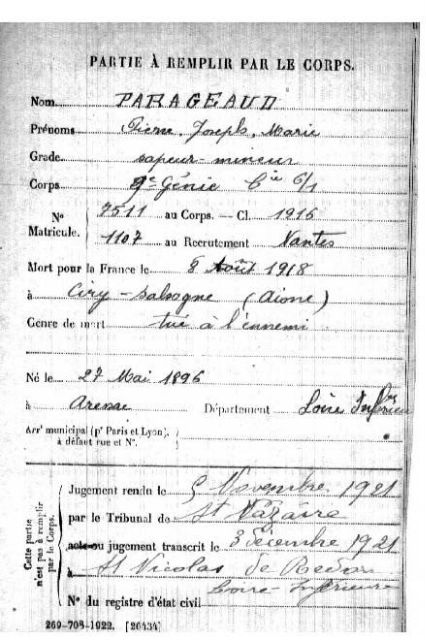 PARTIE À REMPLIR PAR LE CORPS.
Nom PARAGEAUD
Prénoms Pierre, Joseph, Marie
Grade sapeur-mineur
Corps 9e Génie Cie 6/1
N° Matricule. 7511 au Corps. — Cl. 1916
1107 au Recrutement Nantes
Mort pour la France le 8 Août 1918
à Ciry-Salsogne (Aisne)
Genre de mort tué à l'ennemi
Né le 27 Mai 1896
à Département Loire Infre
Arr' municipal (p' Paris et Lyon),
à défaut rue et N°.
Cette partie n'est pas à remplir par le Corps.
Jugement rendu le 5 Novembre 1921
par le Tribunal de St Nazaire
acte ou jugement transcrit le 3 décembre 1921
à St Nicolas de Redon
Loire-Inférieure
N° du registre d'état civil
269-708-1922. [26434]